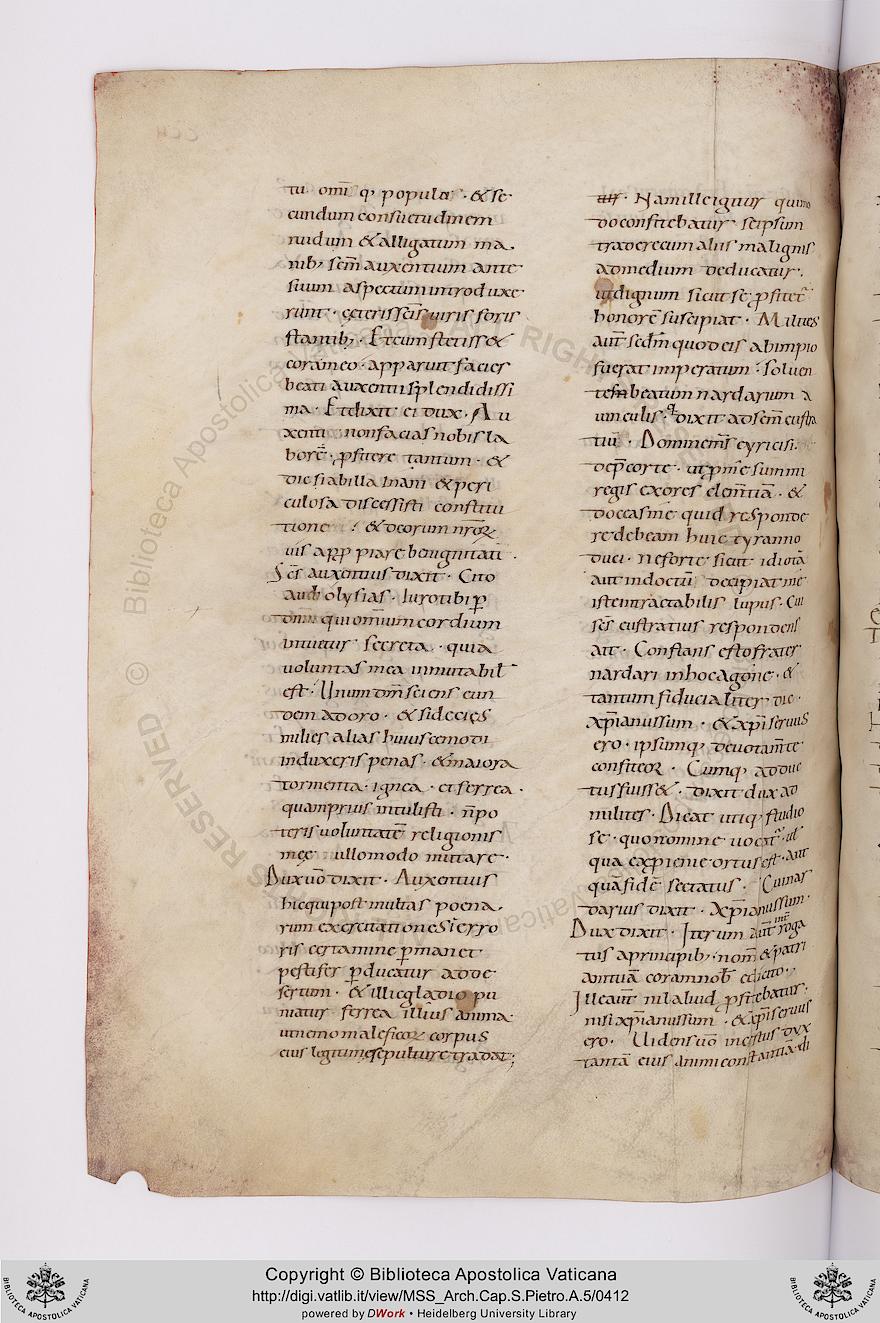 tu omĩ q; populo · & se
cundum consuetudinem
nudum & alligatum ma·
nib; sc̃m auxentium ante
suum aspectum introduxe
runt · ceteris sc̃is uiris foris
stantib; · Et cum stetisset
coram eo · apparuit facies
beati auxentii splendidissi
ma · Et dixit ei dux · Au
xenti · non facias nobis la
borẽ · ꝓfitere tantum · &
die si ab illa inani & peri
culosa discessisti constitu
tione · & deorum nr̃oꝝ
uis appropiare benignitati ·
Sc̃s auxentius dixit · Cito
audi o lysias · Iuro tibi ꝑ
dñm qui omnium cordium
intuetur secreta · quia
uoluntas mea inmutabil
est · Unum dm̃ sciens eun
dem adoro · & si decies
milies alias huiuscemodi
induxeris penas · & maiora
tormenta · ignea · et ferrea ·
quam prius intulisti · ñ po
teris uoluntatẽ religionis
meę ullo modo mutare ·
Dux uõ dixit · Auxentius
hic qui post multas poena
rum exercitationes in erro
ris certamine ꝑmanet
pestifer ꝑducatur ad de
sertum · & illic gladio pu
niatur ferrea illius anima
ut nemo maleficoꝝ corpus
eius legitimę sepulturę tradat;
Nam ille igitur quomo
do confitebatur seipsum
tradere cum aliis malignis
ad medium deducatur ·
ut dignum sicut se ꝓfitet̃
honorẽ suscipiat · Milites
aut̃ sc̃dm quod eis ab impio
fuerat imperatum · soluen
tes beatum nardarium a
uinculis · dixit ad sc̃m eustra
tiũ · Domine mi kyrici
dep̃cor te · ut ꝓ me summi
regis exores clem̃tiã · &
doceas me quid responde
re debeam huic tyranno
duci · ne forte sicut idiotã
aut indoctũ decipiat me
iste intractabilis lupus · Cui
sc̃s eustratius respondens
ait · Constans esto frater
nardari in hoc agone · &
tantum fiducialiter dic ·
xp̃ianus sum · & xp̃i seruus
ero · ipsumq; deuotam̃te
confiteor · Cumq; adduc
tus fuisset · dixit dux ad
milites · Dicat utiq; studio
se · quo nomine uocat̃ · ul
qua ex ꝓgenie ortus est · aut
quã fidẽ sectatus · Cui nar
darius dixit · Xp̃ianus sum ·
Dux dixit · Iterum aut̃ roga
tus a principib; · nom̃ & patri
am tuã coram nob̃ edicito ·
Ille aut̃ nil aliud ꝓfitebatur ·
nisi xp̃ianus sum · & xp̃i seruus
ero · Uidens uõ iniustus dux
tantã eius animi constantiã · di
Copyright © Biblioteca Apostolica Vaticana
http://digi.vatlib.it/view/MSS_Arch.Cap.S.Pietro.A.5/0412
powered by DWork • Heidelberg University Library